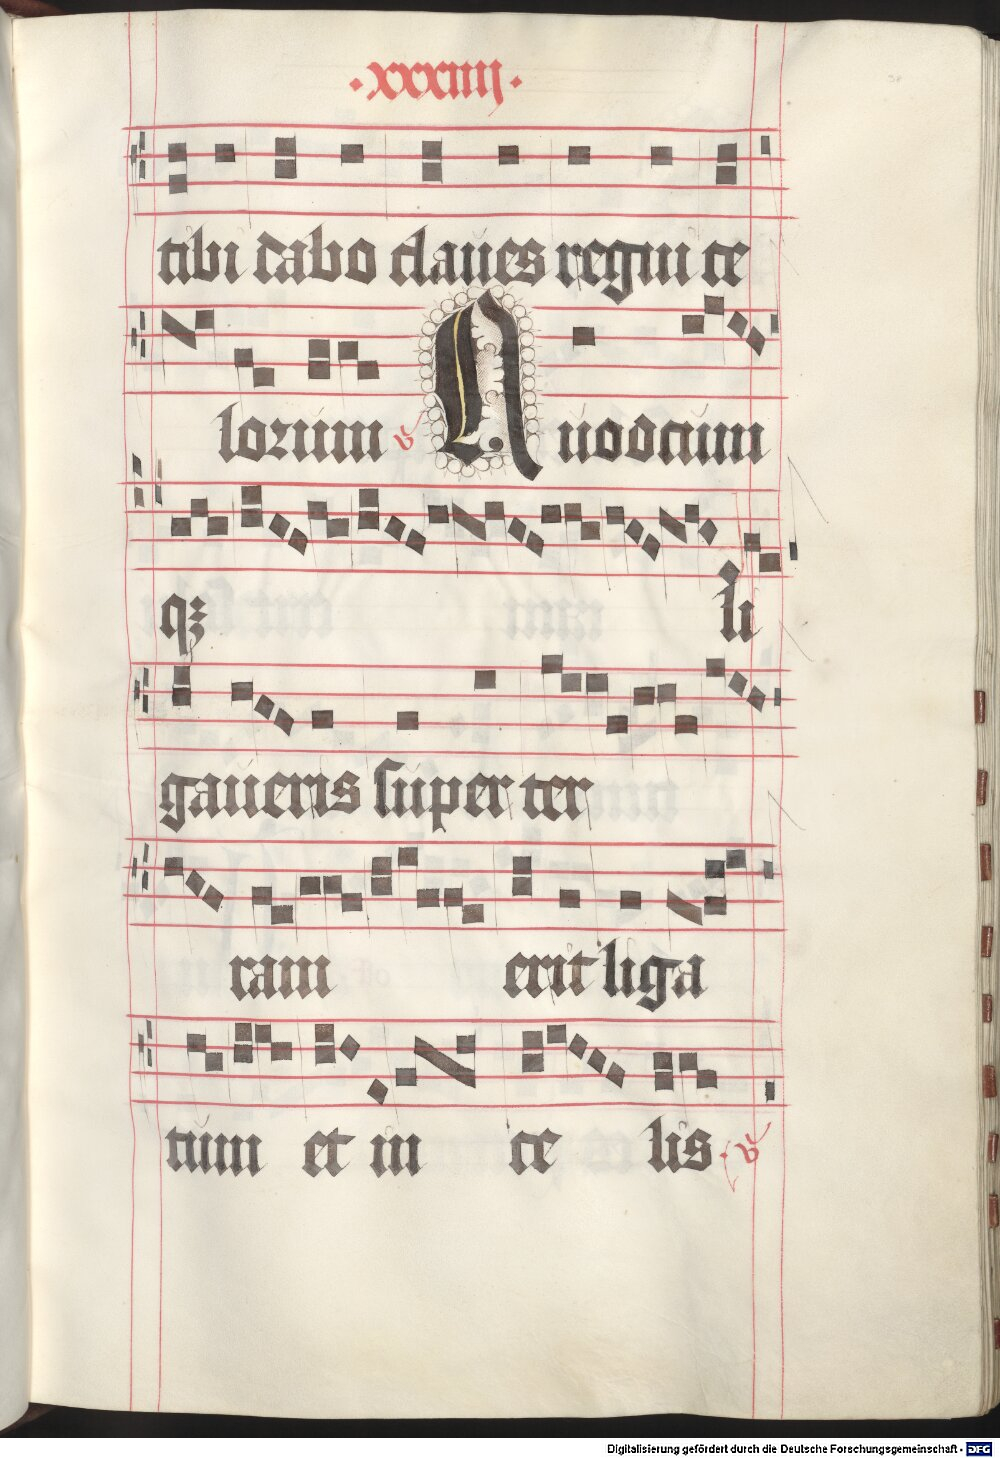 ·xxxiiij·
tibi dabo claues regni ce
lorum v Quodcum
qꝫ li
gaueris super ter
ram erit liga
tum et in ce lis · v
Digitalisierung gefördert durch die Deutsche Forschungsgemeinschaft - DFG